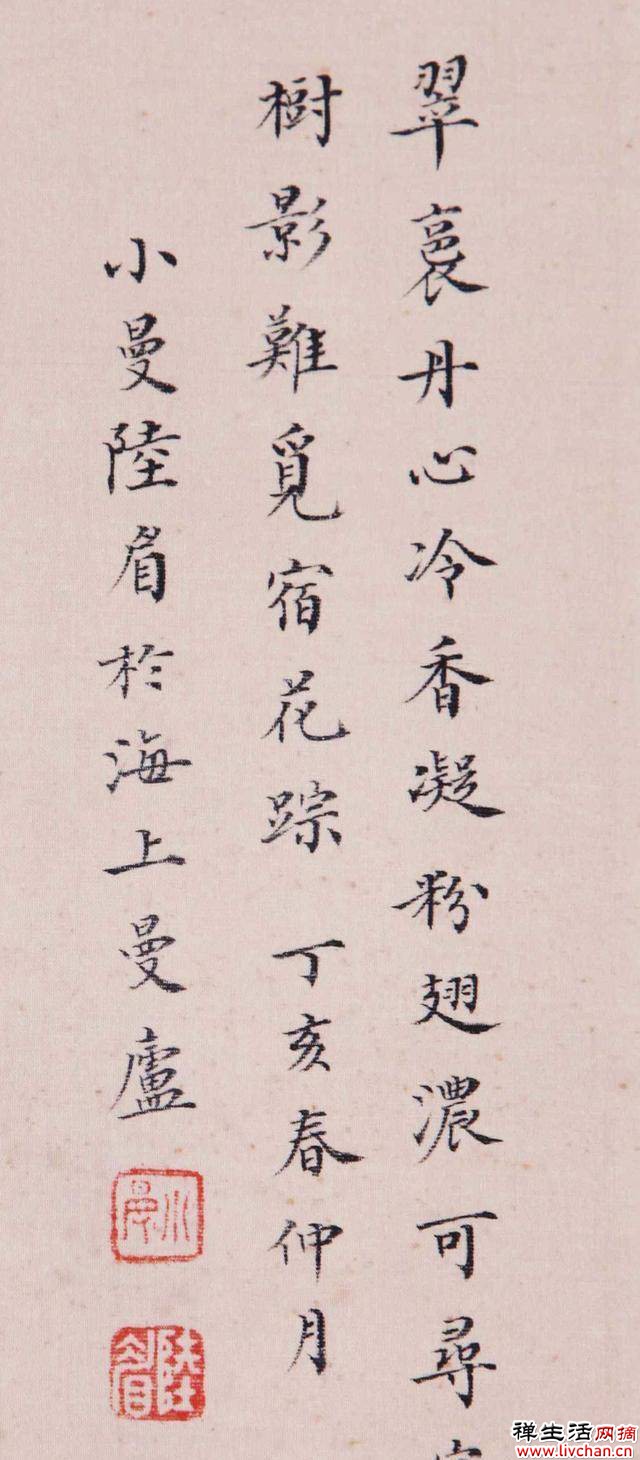 翠裛丹心冷香凝粉翅濃可尋
樹影難覓宿花踪 丁亥春仲月
小曼陸眉於海上曼廬
小曼
陸眉
禅生活网摘
www.livchan.cn